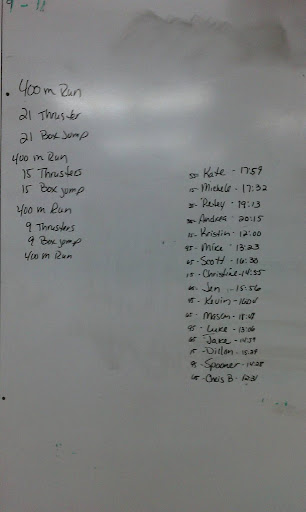 9 - 12
400 m Run
21 Thruster
21 Box Jump
400 m Run
15 Thrusters
15 Box Jump
400 m Run
9 Thrusters
9 Box Jump
400 m Run
Kate - 17:59
15 - Michele - 17:32
- 19:13
Andrea - 20:15
15 - Kristin - 12:00
95 - Mike - 13:23
65 - Scott - 16:30
15 - Christine - 14:55
Jen - 15:56
Kevin -
Mason -
95 - Luke - 13:06
65 - Jake -
15 - Dillon -
Spooner - 14:28
65 - Chris B - 12:31